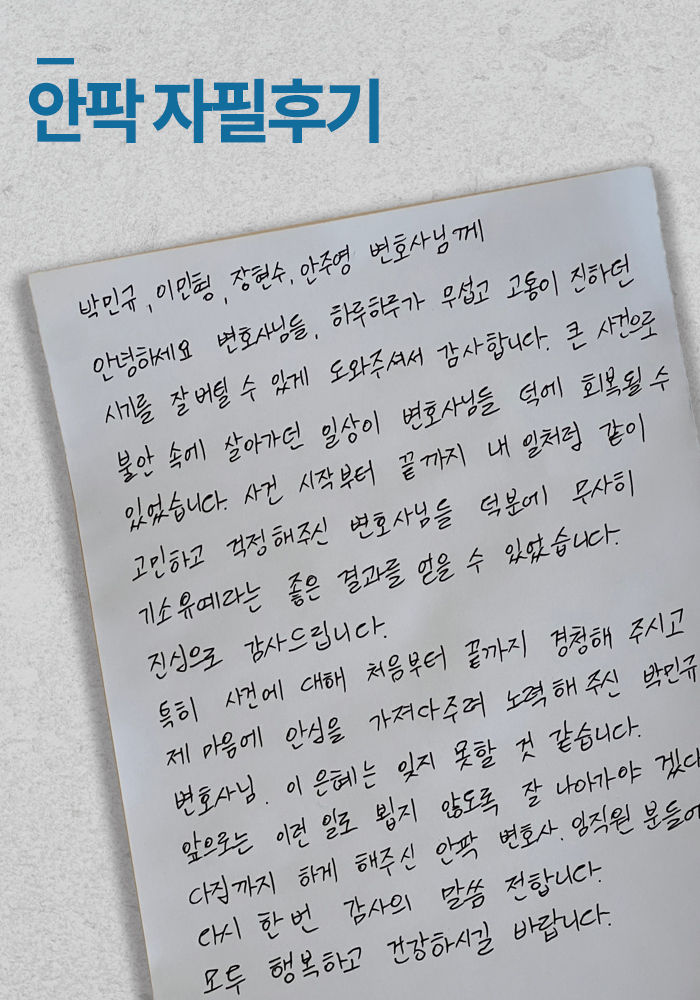 안팍 자필후기
박민규, 이민형, 장현수, 안주영 변호사님께
안녕하세요 변호사님들, 하루하루가 무섭고 고통이 진하던
시기를 잘 버틸 수 있게 도와주셔서 감사합니다. 큰 사건으로
불안 속에 살아가던 일상이 변호사님들 덕에 회복될 수
있었습니다. 사건 시작부터 끝까지 내 일처럼 같이
고민하고 걱정해주신 변호사님들 덕분에 무사히
기소유예라는 좋은 결과를 얻을 수 있었습니다.
진심으로 감사드립니다.
특히 사건에 대해 처음부터 끝까지 경청해 주시고
제 마음에 안심을 가져다주려 노력해 주신 박민규
변호사님. 이 은혜는 잊지 못할 것 같습니다.
앞으로는 이런 일로 뵙지 않도록 잘 나아가야 겠다
다짐까지 하게 해주신 안팍 변호사. 임직원 분들에
다시 한번 감사의 말씀 전합니다.
모두 행복하고 건강하시길 바랍니다.